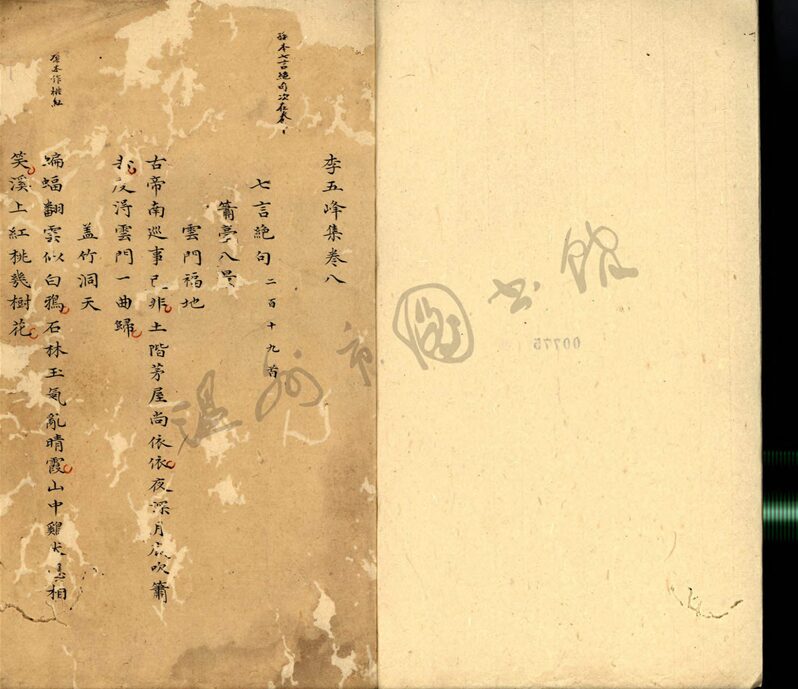 00775
温州市圖書館
李五峰集卷八
七言絶句 二百十九首
簫亭八景
雲門福地
古帝南巡事已非土階茅屋尚依依夜深月底吹簫
去反浔雲門一曲歸
盖竹洞天
蝙蝠翻雲似白鴉石林玉氣亂晴霞山中雞犬相
笑溪上紅桃幾樹花
本七言絶句次在卷
本作桃紅